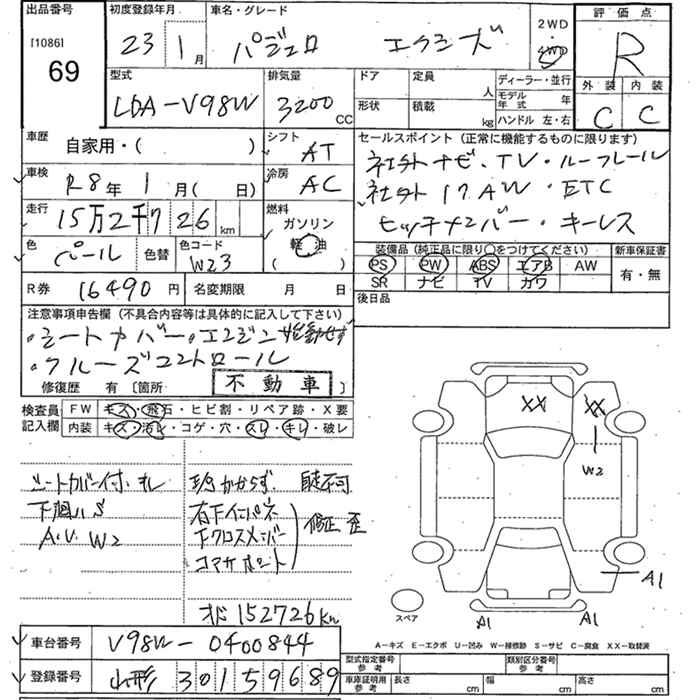 出品番号
[1086]
69
初度登録年月 車名・グレード
23年 1月 パジェロ エクシーズ
2WD
4WD
評価点
R
外装 内装
C C
型式 排気量 ドア 定員 人
LDA-V98W 3200 CC
形状 積載 kg
ディーラー・並行
モデル年式 年
ハンドル 左・右
車歴 自家用・( )
シフト AT
車検 R8年 1月( 日)
冷房 AC
走行 15万2千726km
燃料 ガソリン
軽油
( )
色 パール 色替 色コード W23
R券 16490円 名変期限 月 日
セールスポイント (正常に機能するものに限ります)
社外ナビ、TV・ルーフレール
社外17AW・ETC
ヒッチメンバー・キーレス
装備品(純正品に限り○をつけてください) 新車保証書
PS PW ABS エアB AW 有・無
SR ナビ TV カワ
後日品
注意事項申告欄 (不具合内容等は具体的に記入して下さい)
・シートカバー・エンジン始動せず
・クルーズコントロール
修復歴 有 〔箇所 不動車 〕
検査員記入欄
FW キズ・飛石・ヒビ割・リペア跡・X要
内装 キズ・汚レ・コゲ・穴・スレ・キレ・破レ
シートカバー付
下廻りS
A.U. W2
自走不可
下クロスメンバー
修正 歪
コアサポート
152726Km
車台番号 V98W-0400844
登録番号 山形 301 5 9689
XX XX
W2
A1
A1 A1
スペア
A-キズ E-エクボ U-凹み W-補修跡 S-サビ C-腐食 XX-取替済
型式指定番号 参考 類別区分番号 参考
車庫証明用 参考 長さ cm 幅 cm 高さ cm